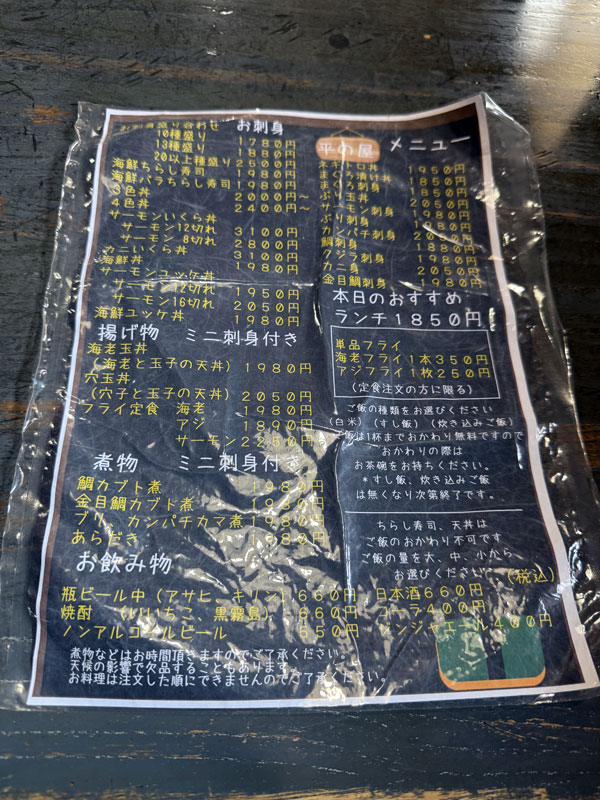 お刺身
お刺身盛り合わせ
10種盛り 1780円
13種盛り 1880円
20以上種盛り
海鮮ちらし寿司 1980円
海鮮バラちらし寿司 1980円
3色丼 2000円〜
4色丼 2400円〜
サーモンいくら丼
サーモン12切れ 3100円
サーモン 8切れ 2800円
カニいくら丼 3100円
海鮮丼 1980円
サーモンユッケ丼
サーモン12切れ 1950円
サーモン16切れ 2050円
海鮮ユッケ丼 1980円
揚げ物 ミニ刺身付き
海老玉丼
(海老と玉子の天丼) 1980円
穴玉丼
(穴子と玉子の天丼) 2050円
フライ定食 海老 1980円
アジ 1890円
サーモン 2250円
煮物 ミニ刺身付き
鯛カブト煮 1980円
金目鯛カブト煮 1980円
ブリ、カンパチカマ煮 1980円
あらだき 1980円
お飲み物
瓶ビール中(アサヒ、キリン) 660円
焼酎 (いいちこ、黒霧島) 660円
ノンアルコールビール 550円
煮物などはお時間頂きますのでご了承ください。
天候の影響で欠品することもあります。
お料理は注文した順にできませんのでご了承ください。
平の屋 メニュー
ネギトロ丼 1950円
まぐろ漬け丼 1850円
まぐろ刺身
ぶり玉丼
サーモン刺身
ぶり刺身
カンパチ刺身
鯛刺身 1880円
クジラ刺身 1980円
カニ身 2050円
金目鯛刺身 1980円
本日のおすすめ
ランチ1850円
単品フライ
海老フライ1本350円
アジフライ1枚250円
(定食注文の方に限る)
ご飯の種類をお選びください
(白米) (すし飯) (炊き込みご飯)
ご飯は1杯までおかわり無料ですので
おかわりの際は
お茶碗をお持ちください。
*すし飯、炊き込みご飯
は無くなり次第終了です。
ちらし寿司、天丼は
ご飯のおかわり不可です
ご飯の量を大、中、小から
お選びください
(税込)
日本酒660円
コーラ400円
ジンジャエール400円